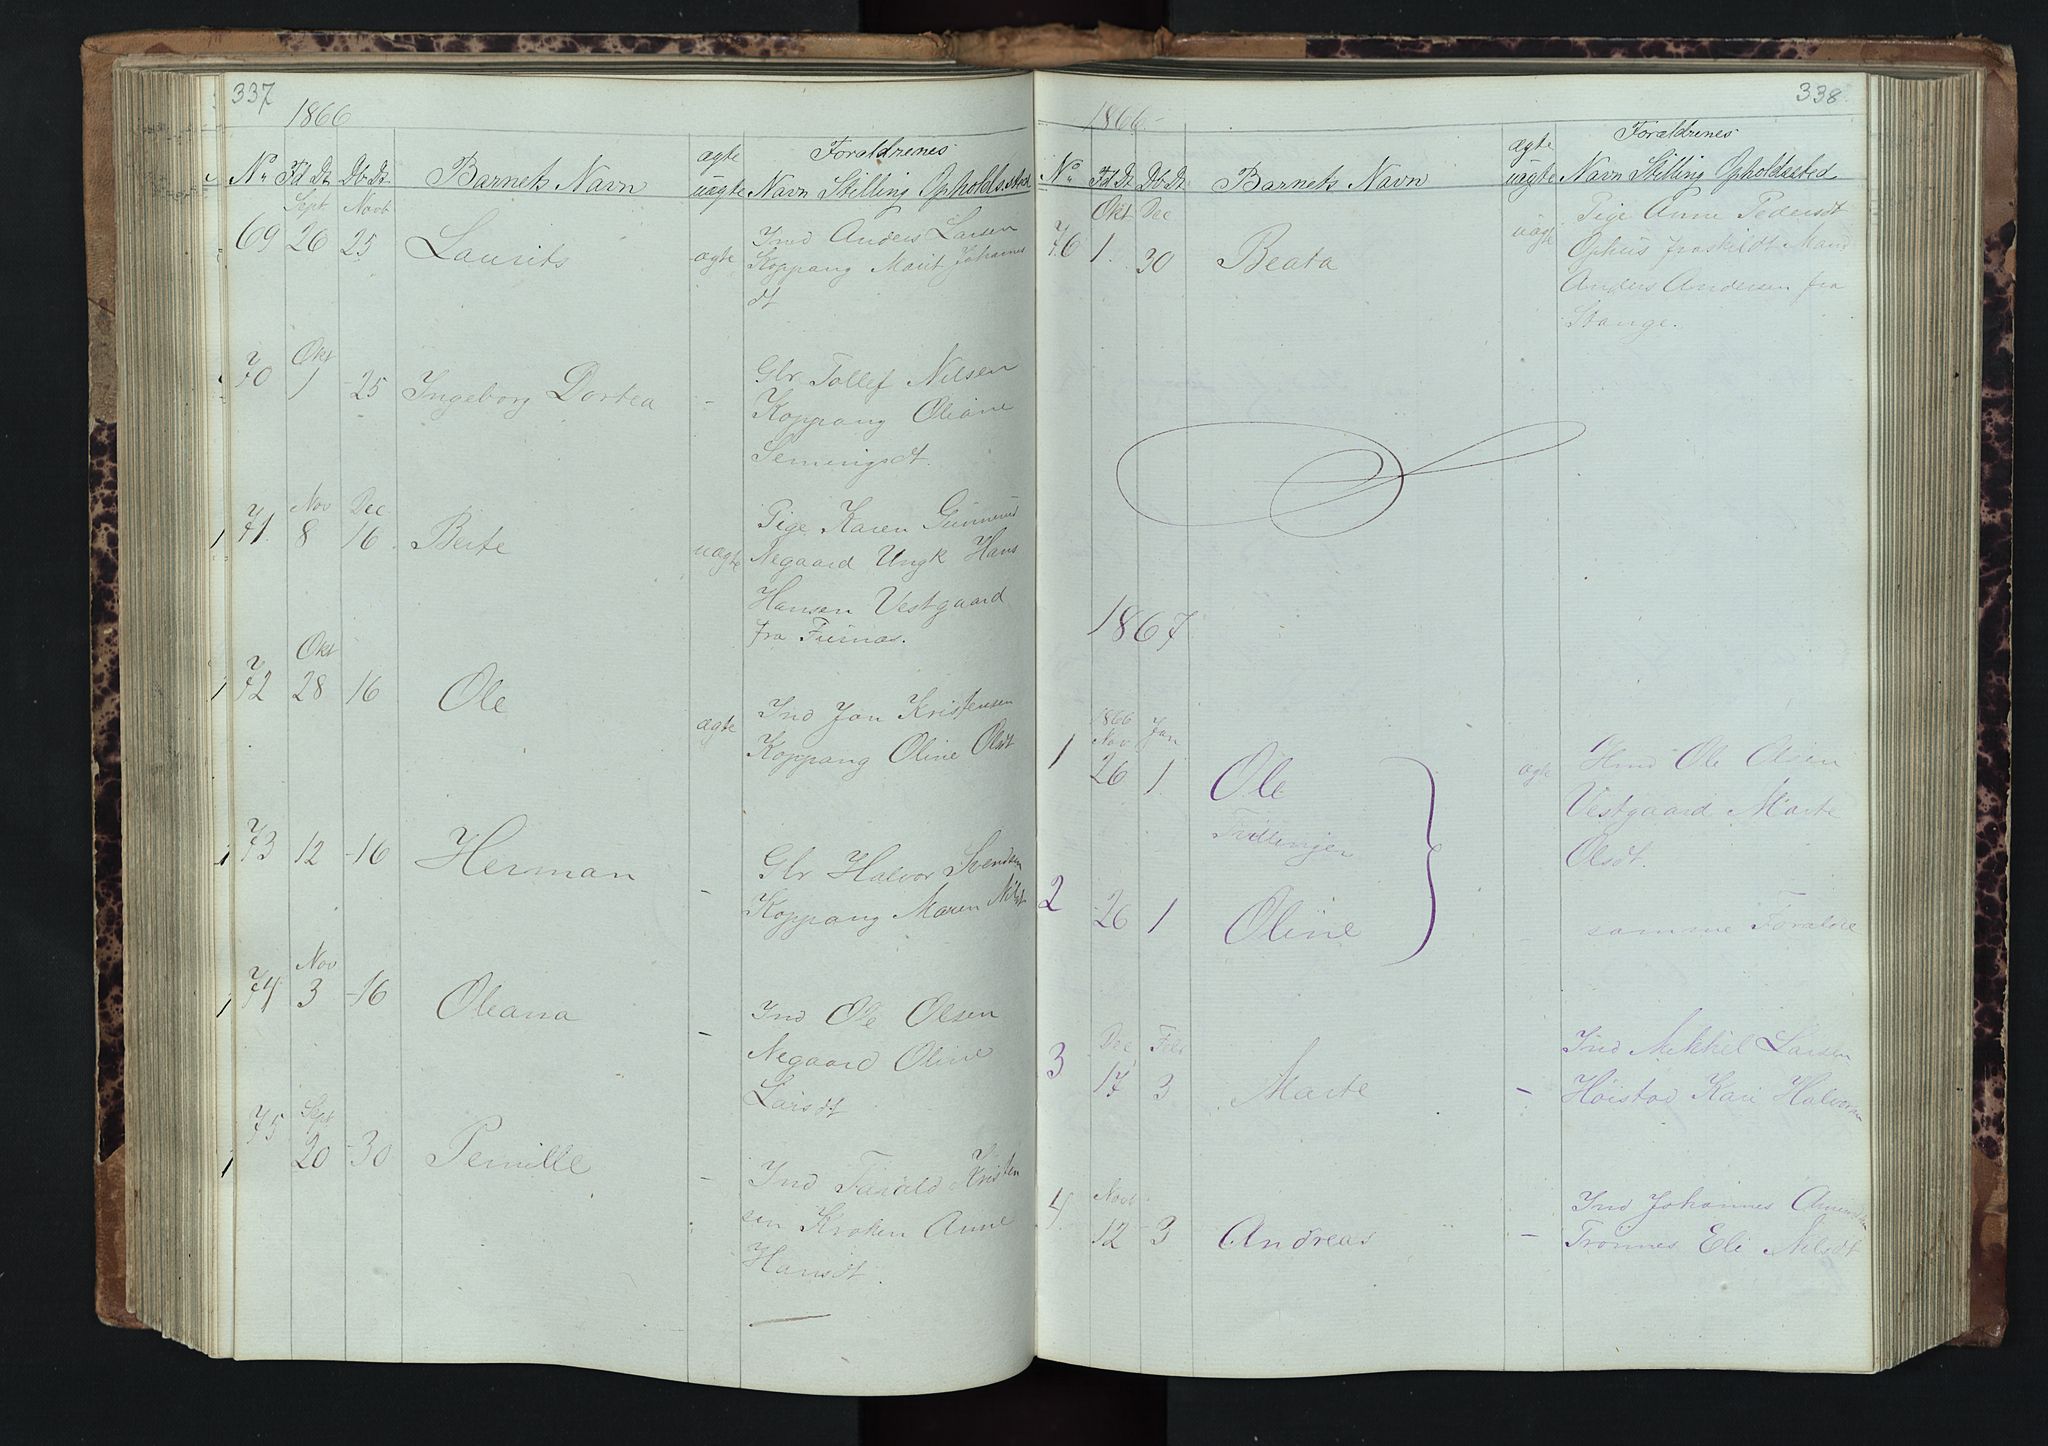 337
1866
Foraldrenes
ægte
No Fd Dt Db Dt Barnets Navn uægte Navn Stilling Opholdssted
Sept Novb
69 26 25 Laurits ægte Ind Anders Larsen
Koppang Marit Johannes
dt
Okt
70 1 -25 Ingeborg Dortea - Glr Tollef Nilsen
Koppang Oliane
Semingsdt.
Nov Dec
71. 8 16. Berte uægte Pige Karen Gunnerud
Negaard Ungk Hans
Hansen Vestgaard
fra Furnæs.
Okt
72 28 16 Ole ægte Ind Jon Kristensen
Koppang Oline Olsdt
73 12 -16 Herman - Glr Halvor Svendsen
Koppang Maren Nilsdt
Nov
74 3 -16 Oleana - Ind Ole Olsen
Negaard Oline
Larsdt
Sept
75 20 -30 Pernille - Ind Harald Kristen
sen Kroken Anne
Hansdt.
338.
1866-
Foraldrenes
ægte
No Fd Dt Db Dt Barnets Navn uægte Navn Stilling Opholdssted
Okt Dec
76 1. 30 Beata uægte Pige Anne Pedersdt
Ophus fraskildt Mand
Anders Andersen fra
Stange.
1867
1866
Nov Jan
1 26 1 Ole ægte Hmd Ole Olsen
Tvillinger Vestgaard Marte
Olsdt.
2 -26 1 Oline - samme Foraldre
Dec Feb
3 17 3 Marte - Ind Mikkel Larsen
Høistad Kari Halvorsen
Novb
4 12 -3 Andreas - Ind Johannes
Trønnes Eli Nilsdt